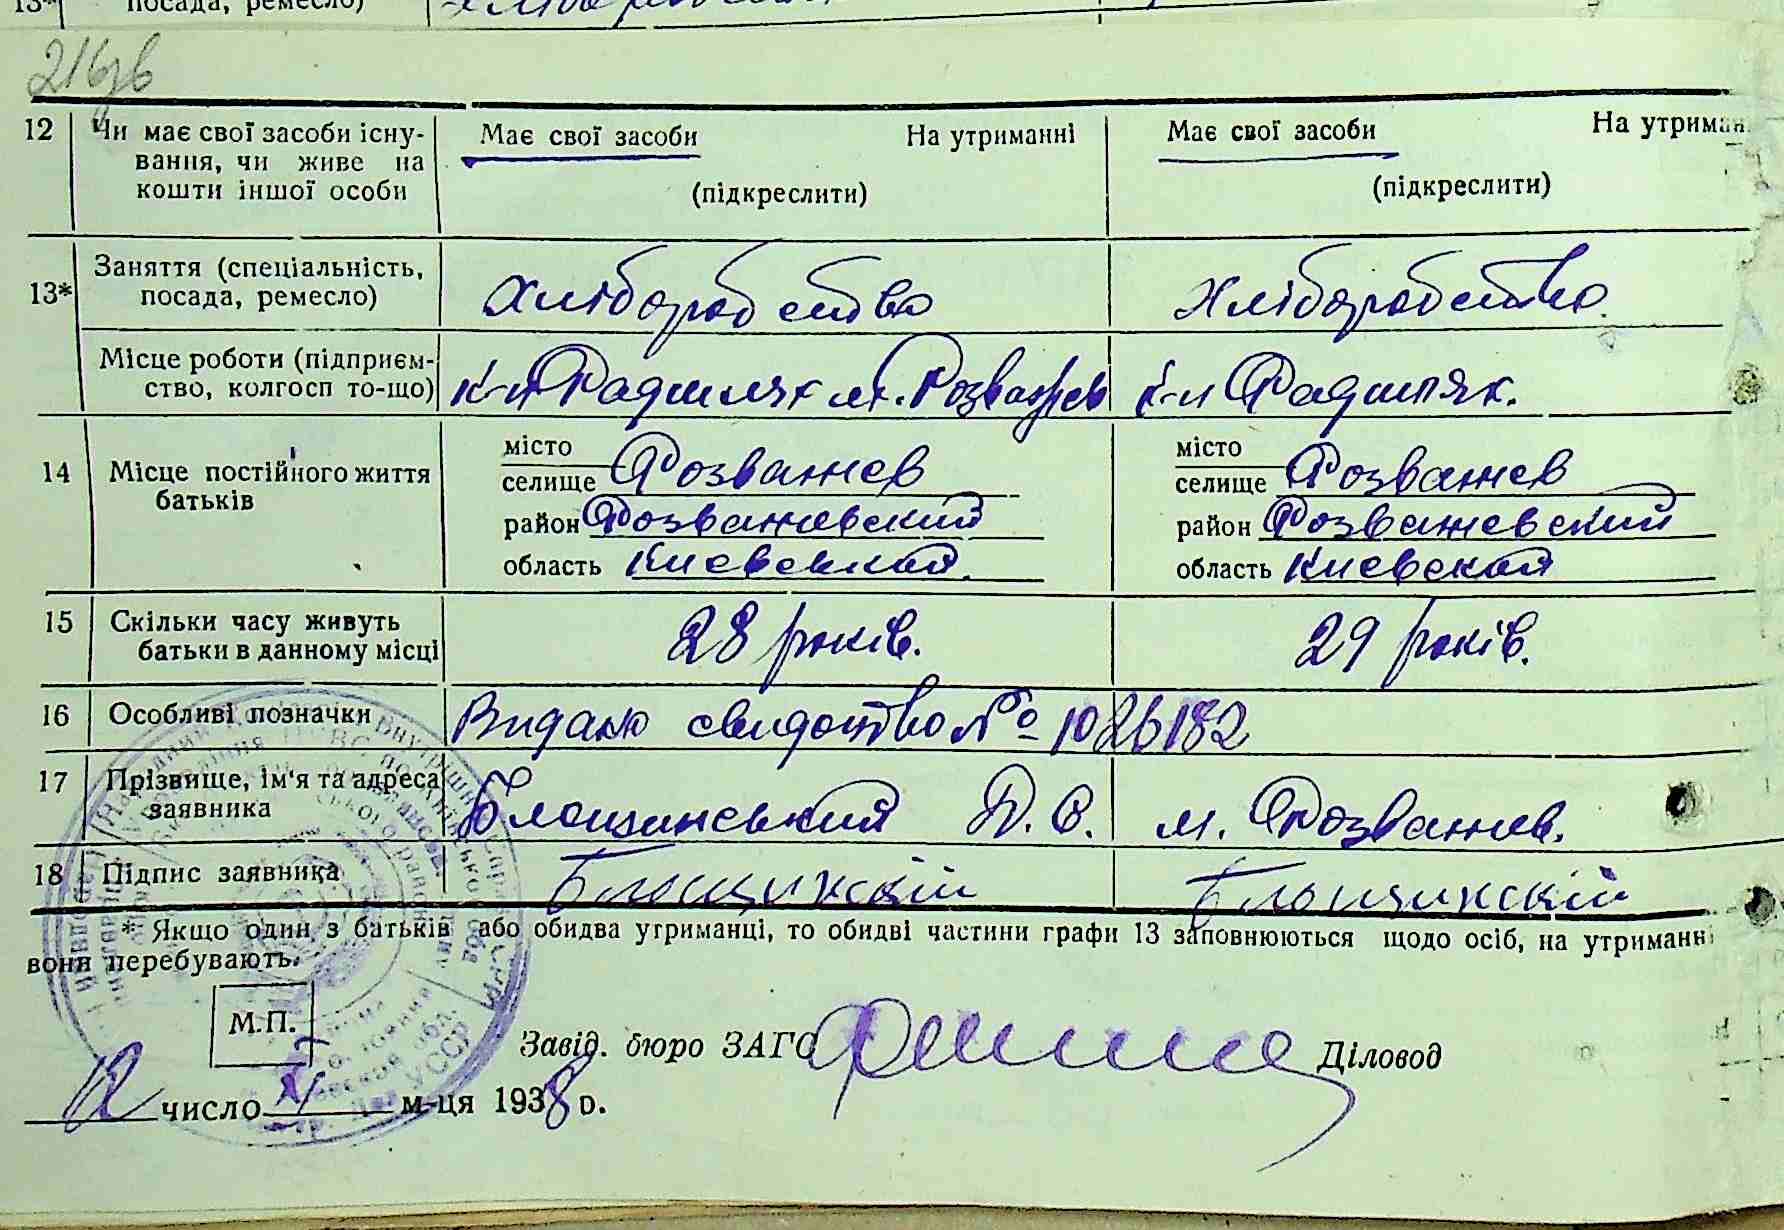 13* посада, ремесло)
216зв
12 Чи має свої засоби існу- Має свої засоби На утриманні Має свої засоби На утриман
вання, чи живе на
кошти іншої особи (підкреслити) (підкреслити)
13* Заняття (спеціальність, хліборобство хліборобство.
посада, ремесло)
Місце роботи (підприєм- к-п Радшлях м. Розважев к-п Радшлях.
ство, колгосп то-що)
14 Місце постійного життя
батьків
місто
селище Розважев
район Розважевский
область Киевская.
місто
селище Розважев
район Розважевский
область Киевская
15 Скільки часу живуть 28 років. 29 років.
батьки в данному місці
16 Особливі позначки Видано свидотство № 1026182
17 Прізвище, ім'я та адреса Блощинський Д. О. м. Розважев.
заявника
18 Підпис заявника Блощинскій Блощинскій
* Якщо один з батьків або обидва утриманці, то обидві частини графи 13 заповнюються щодо осіб, на утриманні
вони перебувають.
М.П.
Завід. бюро ЗАГС Діловод
12 число м-ця 1938 р.